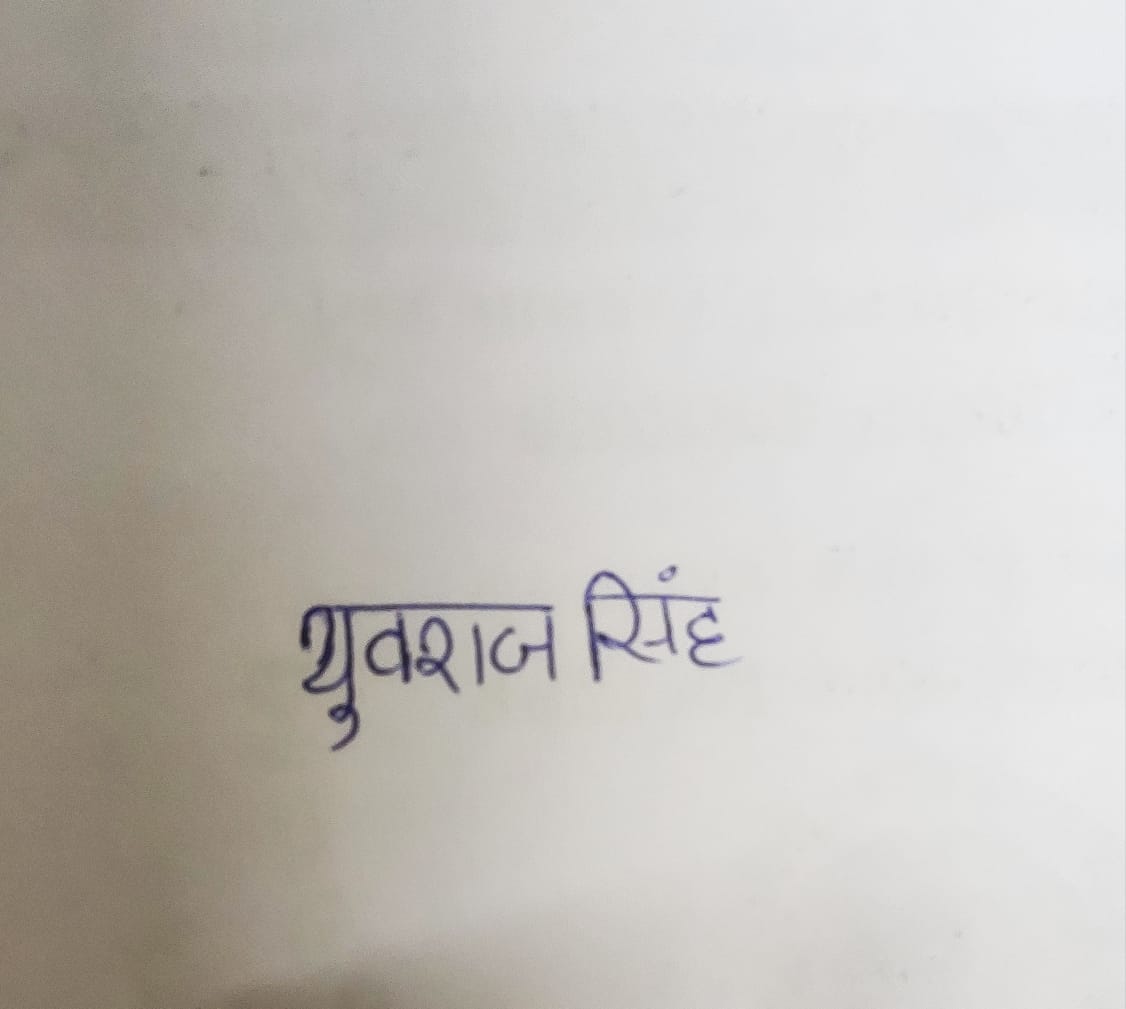 युवराज सिंह